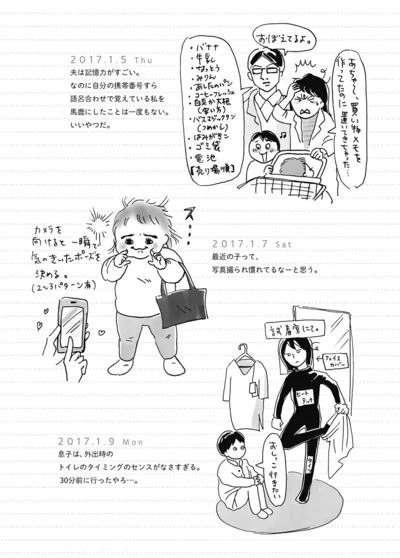 2017.1.5 Thu
夫は記憶力がすごい。
なのに自分の携帯番号すら
語呂合わせで覚えている私を
馬鹿にしたことは一度もない。
いいやつだ。
あちゃ〜、買い物メモを
作ってたのに
置いてきちゃった…
おぼえてるよ。
・バナナ
・牛乳
・なっとう
・みりん
・あしたのパン
・コーヒーフレッシュ
・白菜か大根
(安い方)
・バスマジックリン
(つめかえ)
・はみがきこ
・ゴミ袋
・電池
【売り場順】
カメラを
向けると一瞬で
気のきいたポーズを
決める。
(2〜3パターン有)
ズズ…
2017.1.7 Sat
最近の子って、
写真撮られ慣れてるなーと思う。
試着室にて。
フェイス
カバー
ヒート
テック
おしっこ行きたい
2017.1.9 Mon
息子は、外出時の
トイレのタイミングのセンスがなさすぎる。
30分前に行ったやろ…。